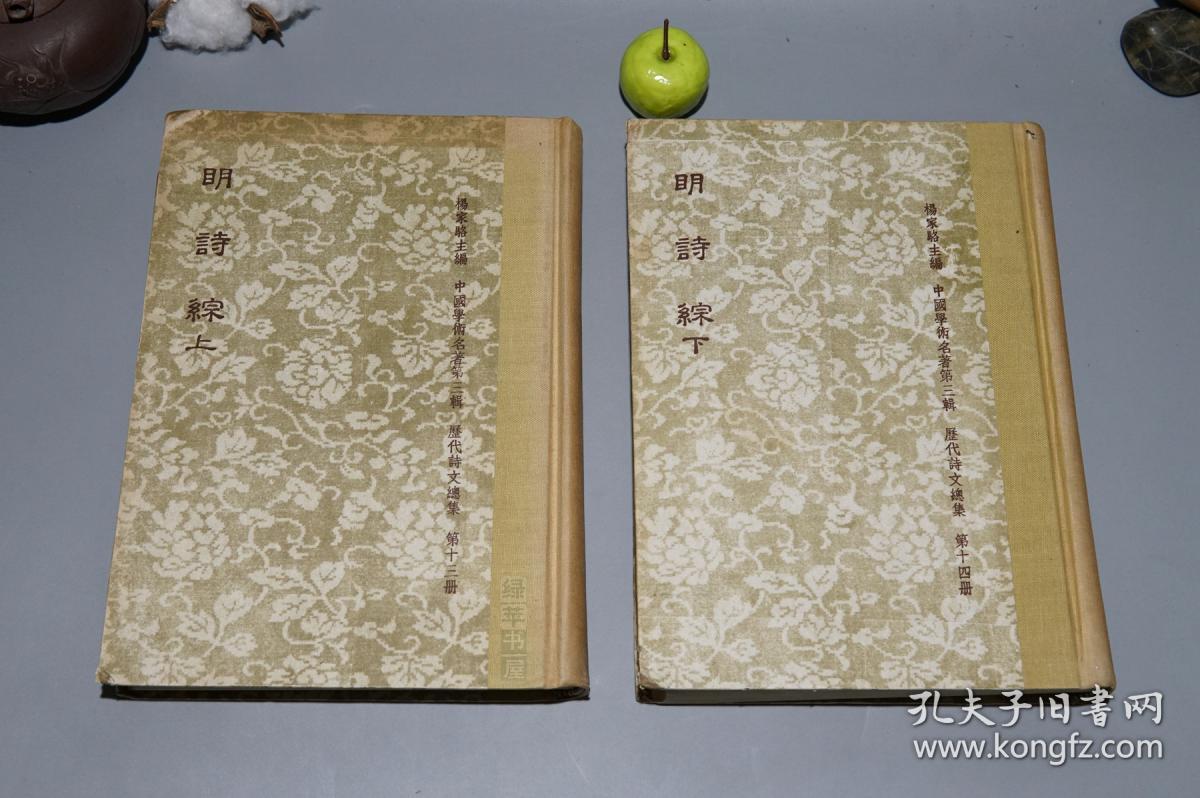 明詩綜上
楊家駱主編 中國學術名著第三輯 歷代詩文總集 第十三册
明詩綜下
楊家駱主編 中國學術名著第三輯 歷代詩文總集 第十四册
绿苹书屋
孔夫子旧書网
www.kongfz.com